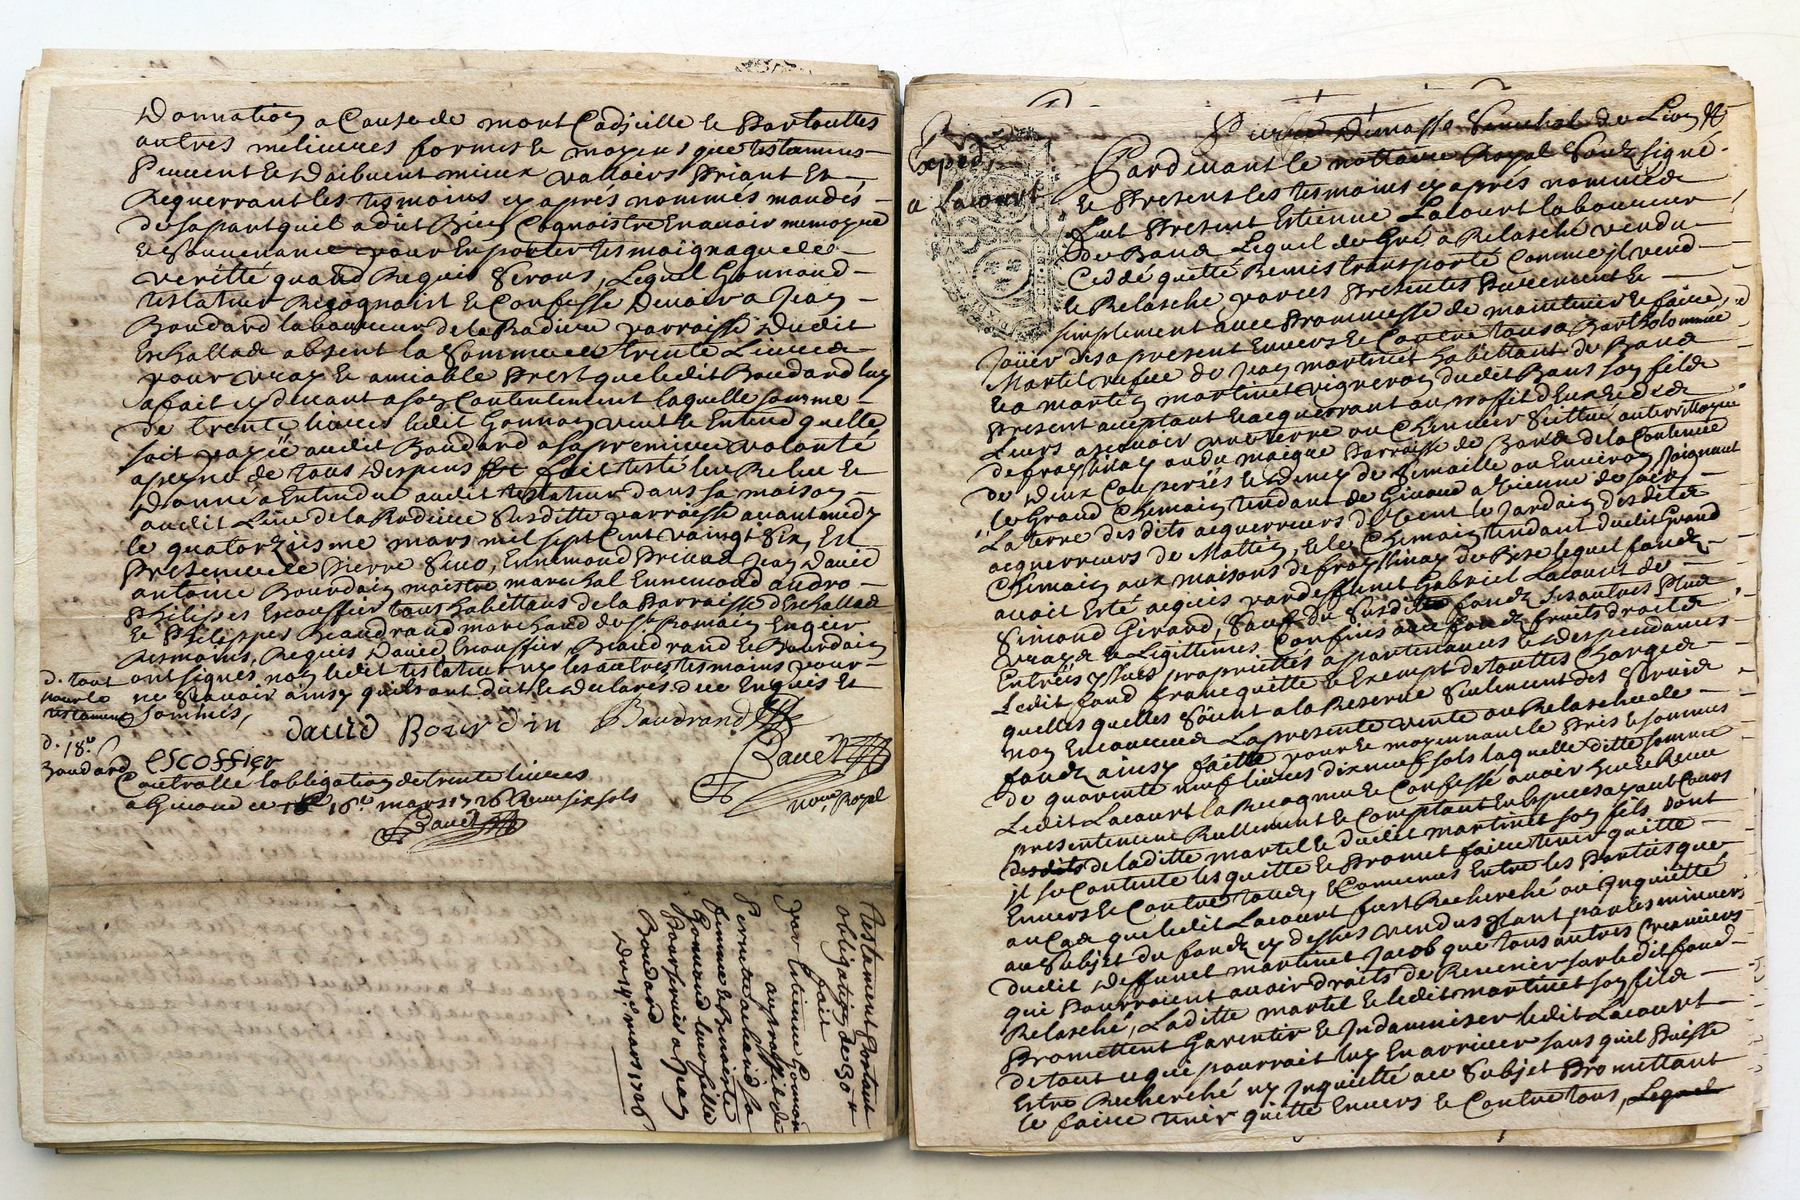 Donnation a Cause de mort Codicille & par touttes
autres melieures formes & moyens que testaments
Peuvent & doibvent mieux valloirs Priant Et
Requerrant les tesmoins cy aprés nommés mandés
de sa part quil a dit Bien Cognoistre En avoir memoyre
& Souvenance pour En porter tesmoignage de
veritté quand Requis Serons, Lequel Gonnond
testateur Recognoist & Confesse Devoir a Jean
Boudard laboureur de la Rodiere parroisse Dudit
Eschallas absent la Somme de trente Livres
pour vray & amiable Prest que ledit Boudard luy
a fait cy devant a son Contentement laquelle somme
de trente livres ledit Gonnon veut & Entend quelle
soit payée audit Boudard a sa premiere volonté
a peyne de tous Despens fait leu Releu &
Donné a Entendre audit testateur dans sa maison
audit Lieu de la Rodiere Susditte parroisse avant midy
le quatorzieme mars mil sept Cent vaingt Six, En
Presence de Pierre Enemond Jean David
antoine Bourdin maistre marechal Ennemond
Philippes Escouffier tous habittans de la Parroisse d'Eschallas
& Philippes Beaudrand marchand de St Romain En Gier
tesmoins, Requis David Escouffier, Beaudrand & Bourdin
ont signés non ledit testateur ny les autres tesmoins pour
ne Scavoir ainsy quils ont dit & declarés de ce Enquis Et
sommés,
d. tout
pour le
testament
David Bourdin Baudrand
d. 18s
Boudard escoffier
Davet
Controllé lobligation de trente livres
a Givord ce 16e mars 1726 Receu six sols
nore Royal
Davet
Testament Contant
obligation de 30 #
fait
par Estienne Gonnon
au proffit de
Pernette achard sa
femme & Benoiste
Gonnond leur fille
Boudard
Du 14e mars 1726
Pierre Dumasse Senechal de Lion
Exped.
a Lacourt
Pardevant le nottaire Royal Souz signé
& Present les tesmoins cy aprés nommés
Fut Present Estienne Lacourt laboureur
de Bans Lequel de Gré a Relasché vendu
Ceddé quitté Remis transporté Comme il vend
& Relasche par ces Presentes Purement &
simplement avec Prommesse de maintenir & faire
Jouïr des a present Envers & Contre tous a Bartholomiue
Martel vefve de Jean martinet habittant de Bans
& a martin martinet vigneron dudit Bans son fils
Present acceptant & acquerrant au proffit d'Eux & des
Leurs a scavoir une terre ou Chenier Scittué au territtoire
de frayssinay ou du marque Parroisse de Bans de la Contenue
de deux Couperiés & demy de Semaille ou Environ Joignant
le Grand Chemain tendant de Givord a Vienne de soir,
La terre desdits acquerreurs de vent le Jardain desdits
acquerreurs de Mattin, & le Chemain tendant dudit Grand
Chemain aux maisons de frayssinay de Bize lequel fonds
avoit Esté acquis par deffunct Gabriel Lacourt de
Simond Girard, Sauf du Susdit fonds Ses autres Plus
vrays & Legittimes Confins avec fonds fruits droits
Entrées yssues proprietés apartenances & despendances
Ledit fond franc quitte & Exempt de touttes Charges
quelles quelles Soient a la Reserve Seulement des Servis
non Encourus La presente vente ou Relasche de
fonds ainsy faitte pour & moyennant le Pris & somme
de quarente neuf livres dix neuf sols laquelle ditte somme
Ledit Lacourt a Recognu & Confessé avoir Eue & Receue
presentement Reellement & Comptant En Especes ayant Cours
de laditte martel & dudit martinet son fils dont
jl se Contente les quitte & Promet faire tenir quitte
Envers & Contre tous, & Convenus Entre les Parties que
au Cas que ledit Lacourt fust Recherché ou Inquietté
au Subjet du fonds cy dessus vendus tant par les mineurs
dudit deffunct martinet Jacob que tous autres Creanciers
qui Pourroient avoir droits de Revenir sur ledit fond
Relasché, Laditte martel & ledit martinet son fils
Promettent Garentir & Indamniser ledit Lacourt
de tout ce qui pourroit luy En arriver sans quil Puisse
Estre Recherché ny Inquietté au Subjet Promettant
le faire tenir quitte Envers & Contre tous, Lequel